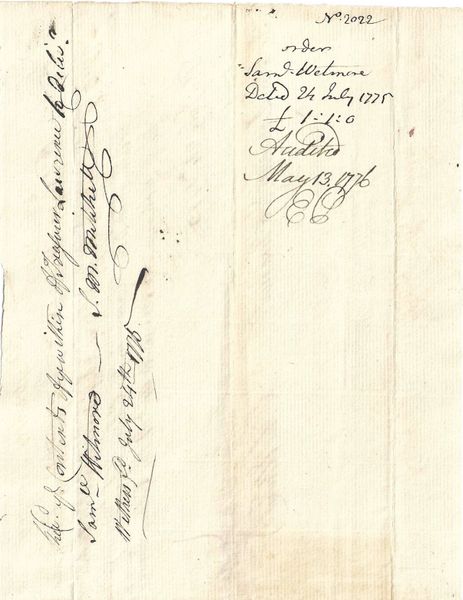 No. 2022
order
Saml. Wetmore
Dated 24 July 1775
£ 1:1:0
Audited
May 13, 1776
Contents of ye within of Treasurer Lawrence
Saml. Wetmore — S. M. Mitchell
Wethersfd. July 24th 1775